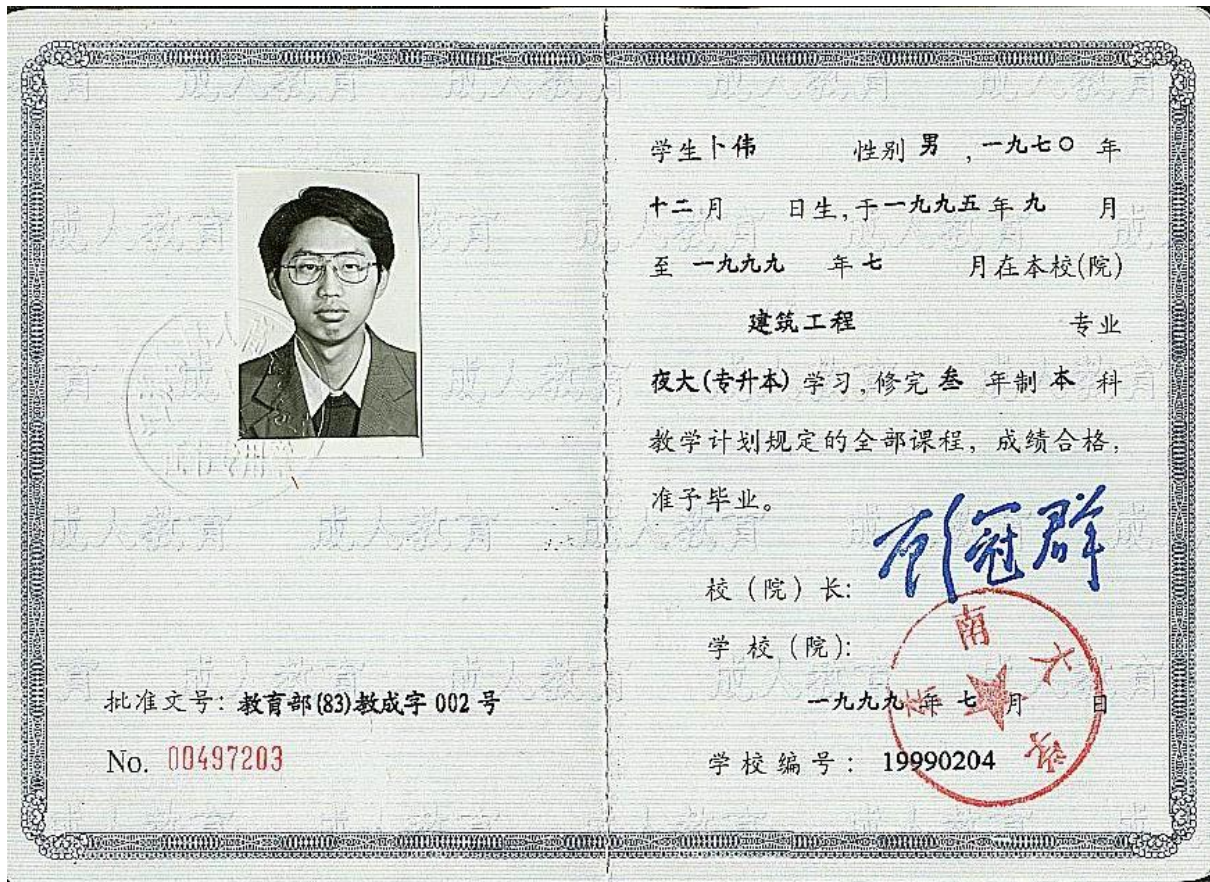 批准文号：教育部(83)教成字 002 号
No. 00497203
学生卜伟 性别男，一九七〇年
十二月 日生，于一九九五年九 月
至 一九九九 年七 月在本校(院)
建筑工程 专业
夜大(专升本)学习，修完叁 年制本 科
教学计划规定的全部课程，成绩合格，
准予毕业。
校（院）长：顾冠群
学 校（院）：
一九九九年七月 日
学校编号：19990204
东南大学
成人教育